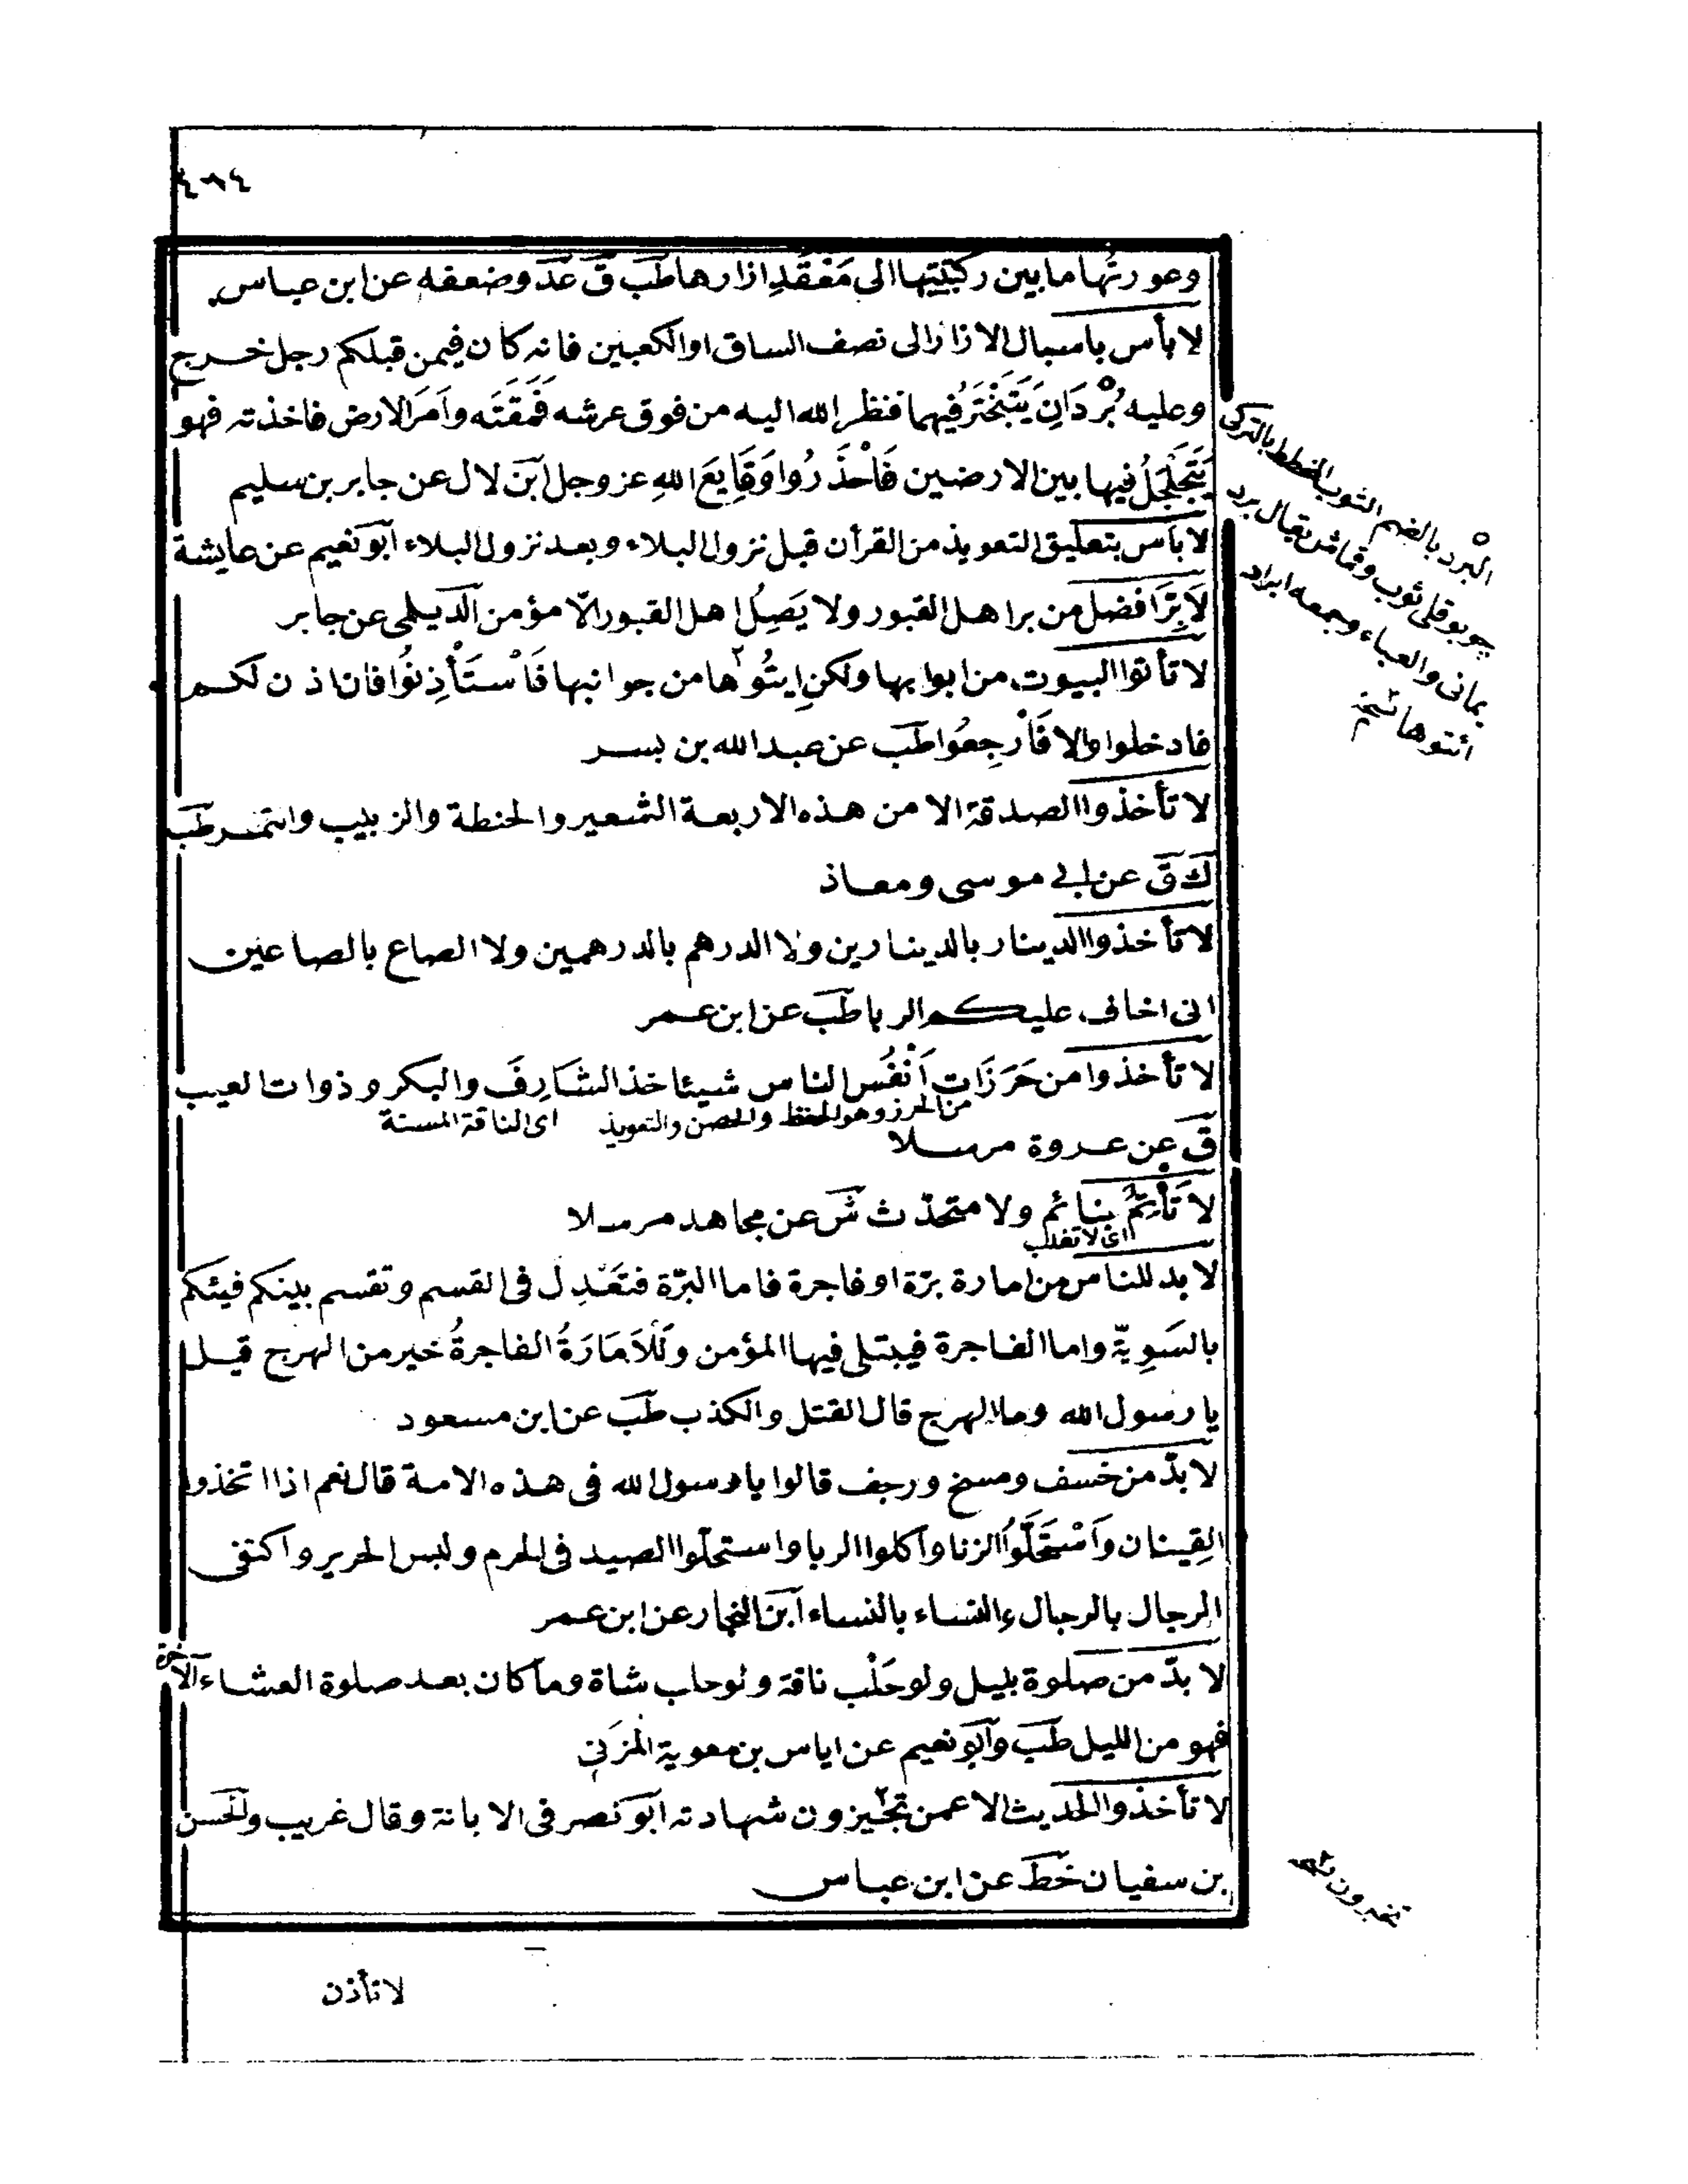 ٤٨٤
وعورتُها ما بين ركبَتيها الى مَعْقَدِ ازارها طَبَ قَ عَدَ وضعفه عن ابن عباس
لا بأس باسبال الازار الى نصف الساق او الكعبين فانه كان فيمن قبلكم رجل خرج
وعليه بُرْدَانِ يَتَبَخْتَرُ فيهما فنظر الله اليه من فوق عرشه فَمَقَتَه وأمَرَ الارض فاخذته فهو
يَتَجَلْجَلُ فيها بين الارضين فَاحْذَرُوا وَقَايِعَ اللهِ عز وجل ابَن لال عن جابر بن سليم
لا بأس بتعليق التعويذ من القرأن قبل نزول البلاء وبعد نزول البلاء ابَو نعَيم عن عايشة
لَا بِرَّ افضل من بر اهل القبور ولا يَصِلُ اهل القبور الّا مؤمن الدَيلمى عن جابر
لا تأتوا البيوت من ابوابها ولكن ايتُوها من جوانبها فَاسْتَأْذِنُوا فان اذن لكم
فادخلوا والا فَارْجِعُوا طَبَ عن عبد الله بن بسر
لا تأخذوا الصدقة الا من هذه الاربعة الشعير والحنطة والزبيب والتمر طَبَ
كَ قَ عن ابى موسى ومعاذ
لا تأخذوا الدينار بالدينارين ولا الدرهم بالدرهمين ولا الصاع بالصاعين
انى اخاف عليكم الربا طَبَ عن ابن عمر
لا تأخذوا من حَرَزَاتِ اَنْفُسِ الناس شيئا خذ الشَارِفَ والبكر وذوات العيب
من الحرز وهو الحفظ والحصن والتعويذ اى الناقة المسنة
قَ عن عروة مرسلا
لا تَأْتَمَّ بنائم ولا متحدّث شَ عن مجاهد مرسلا
لا بد للناس من امارة برّة او فاجرة فاما البرّة فتَعْدِل فى القسم وتقسم بينكم فيئكم
بالسَوِيّة واما الفاجرة فيبتلى فيها المؤمن وَلَلاَمَارَةُ الفاجرةُ خير من الهرج قيل
يا رسول الله وما الهرج قال القتل والكذب طَبَ عن ابن مسعود
لا بدّ من خسف ومسخ ورجف قالوا يا رسول الله فى هذه الامة قال نعم اذا اتخذوا
القِينان وَاسْتَحَلُّوا الزنا واكلوا الربا واستحلّوا الصيد فى الحرم ولبس الحرير واكتفى
الرجال بالرجال والنساء بالنساء ابَن النجار عن ابن عمر
لا بدّ من صلوة بليل ولو حَلْب ناقة ولو حلب شاة وما كان بعد صلوة العشاء الآخرة
فهو من الليل طَبَ وابَو نعيم عن اياس بن معوية المُزَنى
لا تأخذوا الحديث الا عمن تجيزون شهادته ابَو نصر فى الابانة وقال غريب والحَسن
بن سفيان خَطَ عن ابن عباس
لا تأذن
البُرْد بالضم الثوب المخطط بالتركى
چوبوقلى ثوب وقماش يقال برد
يمانى والعباء وجمعه ابراد
ائتوها نسخه
تخبرون نسخه